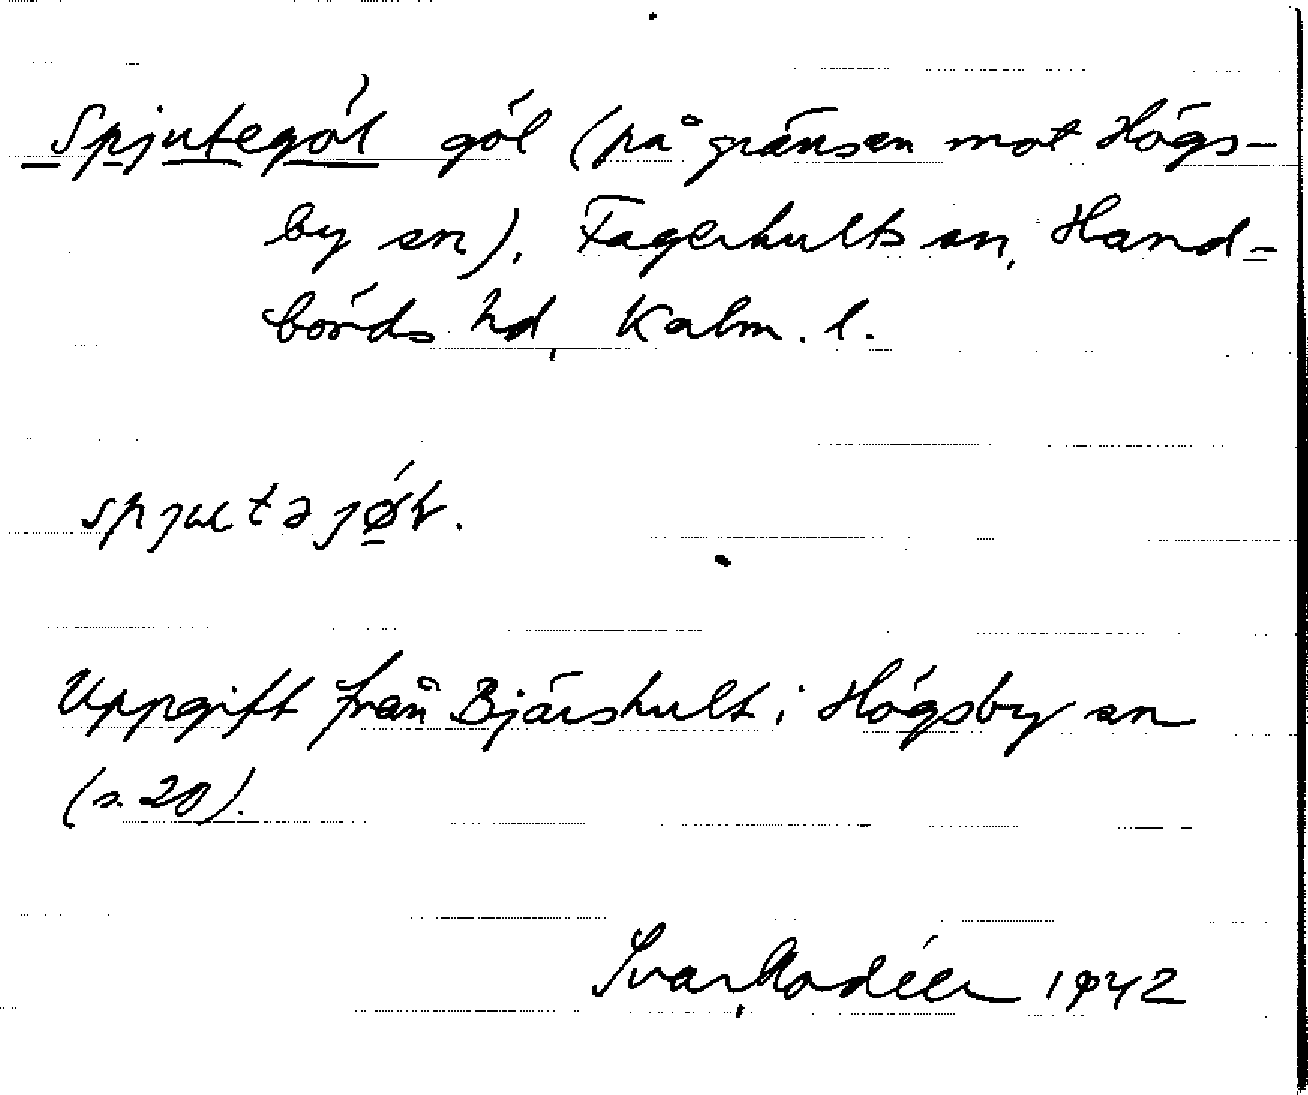 Spjutegöl göl (på gränsen mot Högs-
by sn), Fagerhults sn, Hand-
börds hd, Kalm. l.
spjutəjǿ̠ɫ.
Uppgift från Bjärshult i Högsby sn
(s. 20).
Ivar Modéer 1942